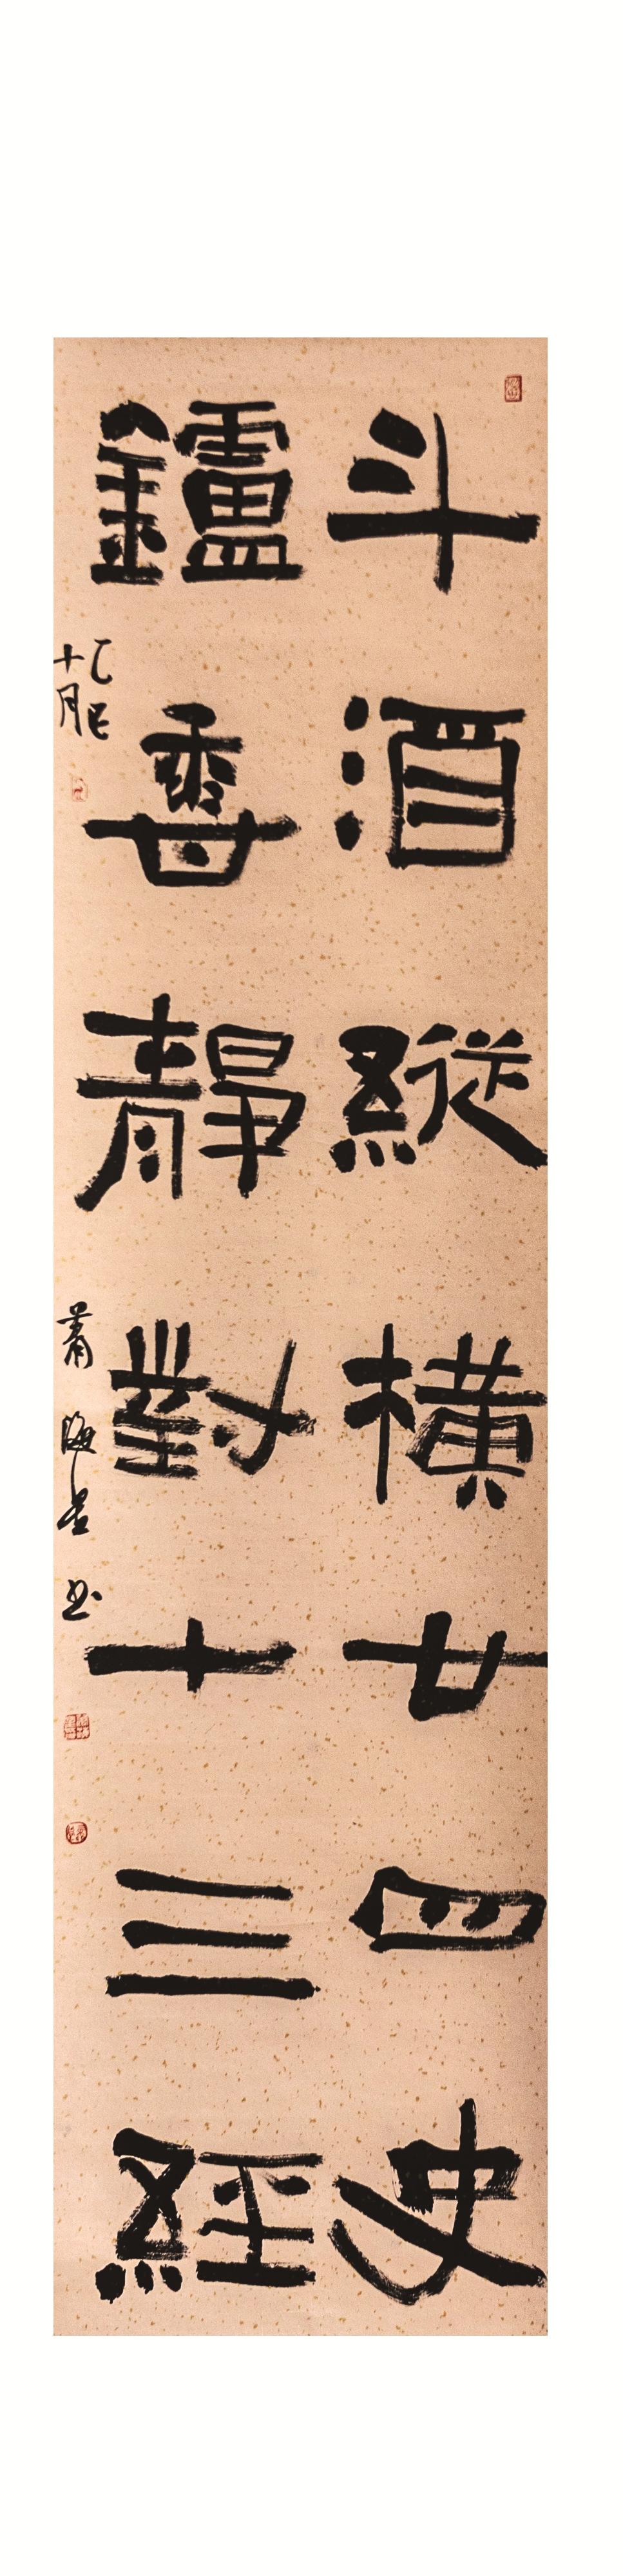 斗酒縱橫廿四史
鑪香靜對十三經
乙巳
十月
蕭海 書